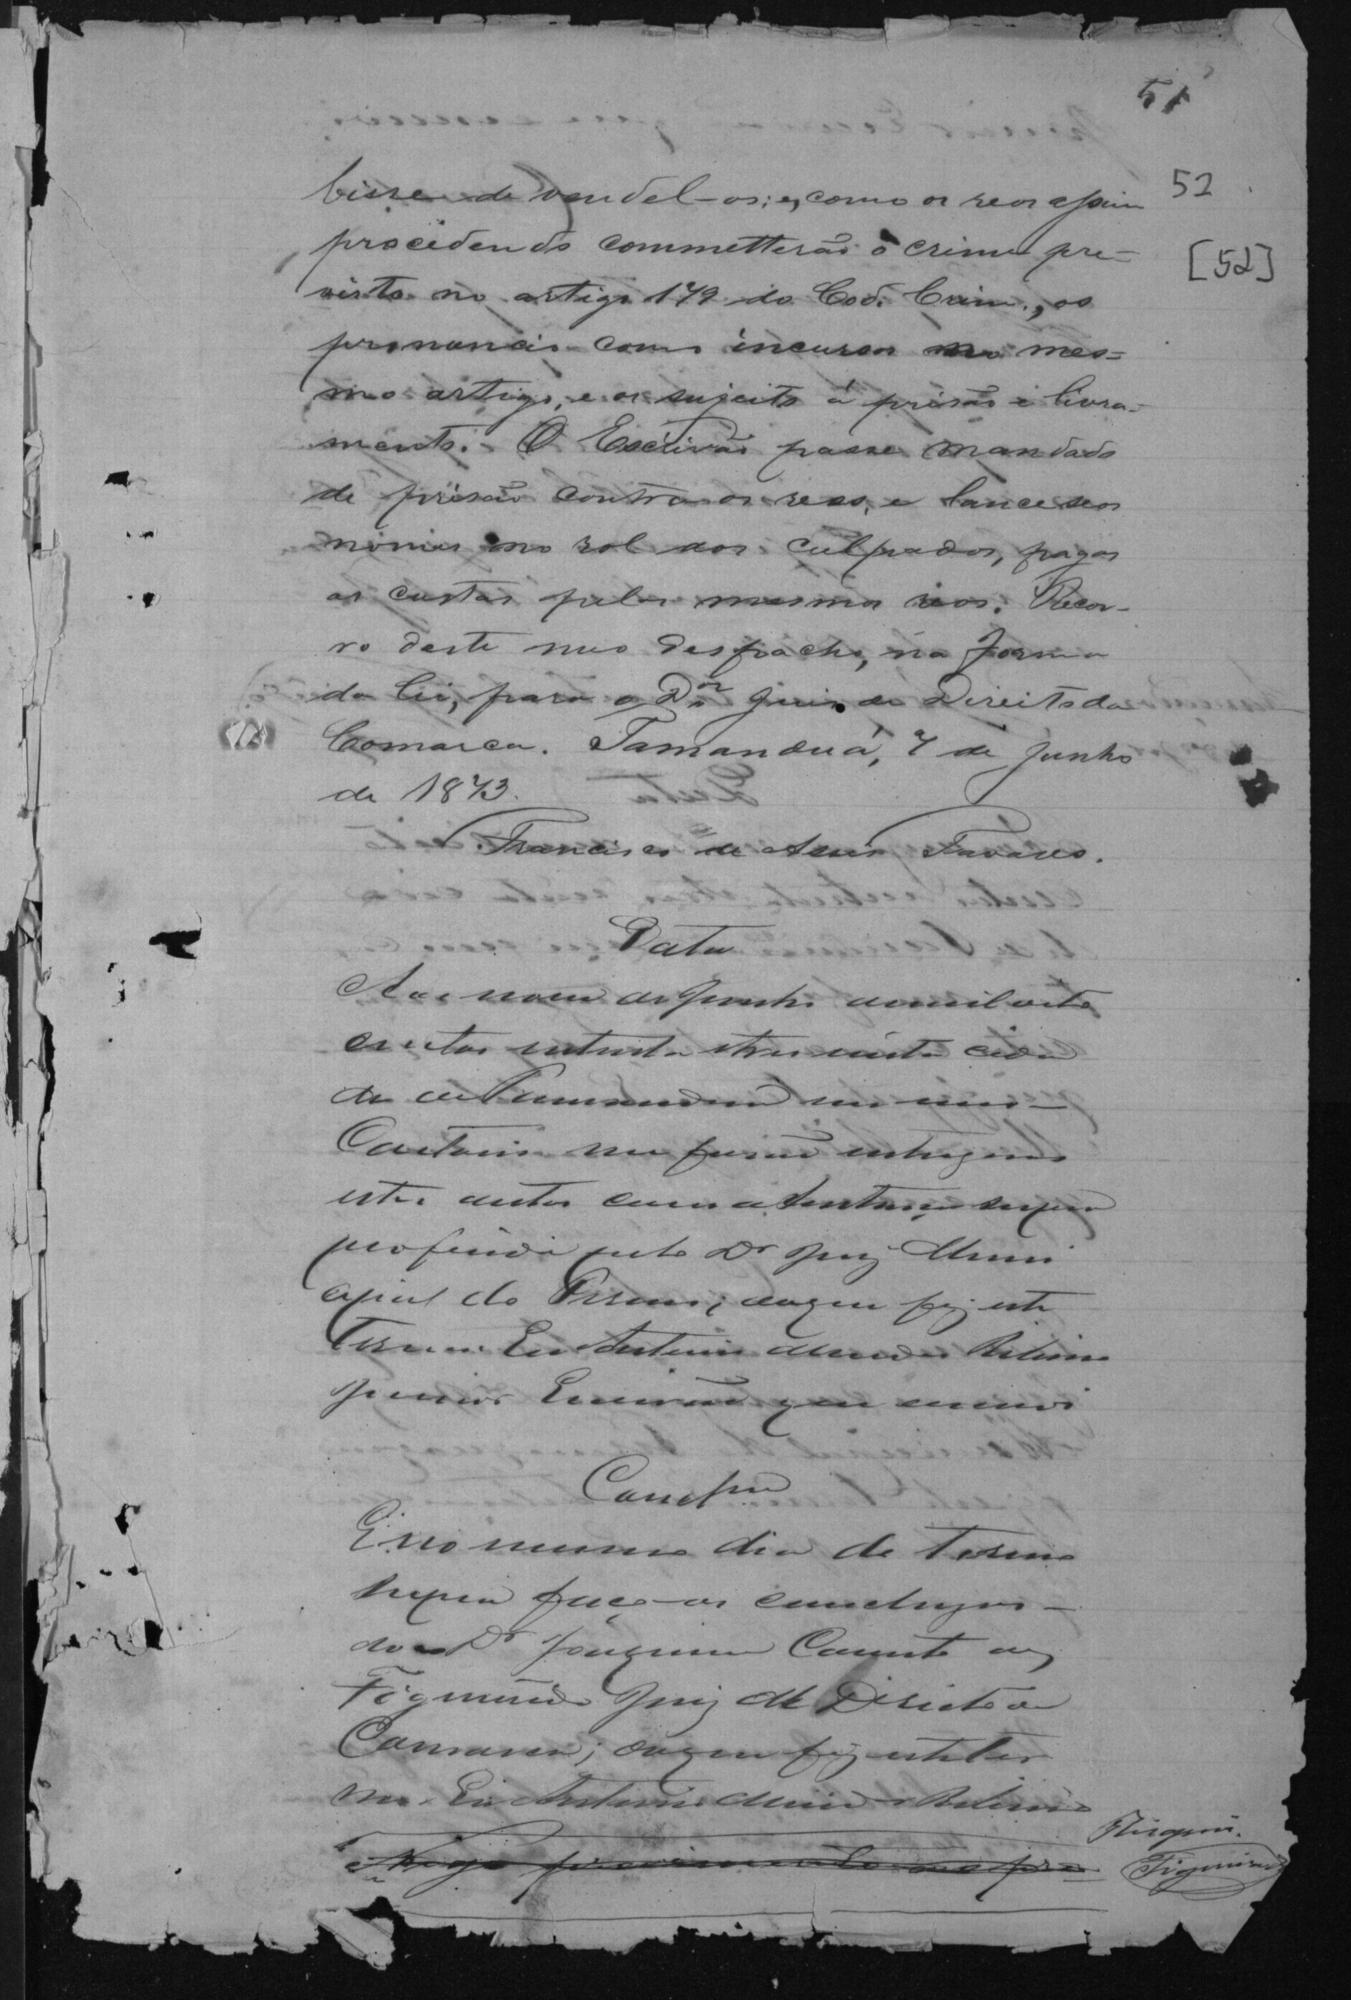 51
52
[52]
de vendel-os; e, como os reos assim
procedendo commetterão o crime pre-
visto no artigo 179 do Cod. Crim., os
pronuncio como incursos no mes-
mo artigo, e os sujeito á prisão e livra-
mento. O Escrivão passe mandado
de prisão contra os reos, e lance seos
nomes no rol dos culpados, pagas
as custas pelos mesmos reos. Recor-
ro deste meo despacho, na forma
da lei, para o Dr. Juiz de Direito da
Comarca. Tamanduá, 7 de Junho
de 1873.
Francisco de Assis Tavares.
Data
Aos nove de Junho de mil oito
centos setenta e tres nesta cida
de de Tamanduá em meo
Cartorio me forão entregues
estes autos com a Sentença supra
proferida pelo Dr Juiz Muni
cipal do Termo; do que fiz este
Termo. Eu Antonio Ribeiro
Junior Escrivão que escrevi
Concl.am
E no mesmo dia do termo
supra faço-os conclusos
ao Dr Joaquim de
Figueiredo Juiz de Direito da
Comarca; do que fiz este ter
mo. Eu Antonio Ribeiro
Nego provimento
Figueiredo